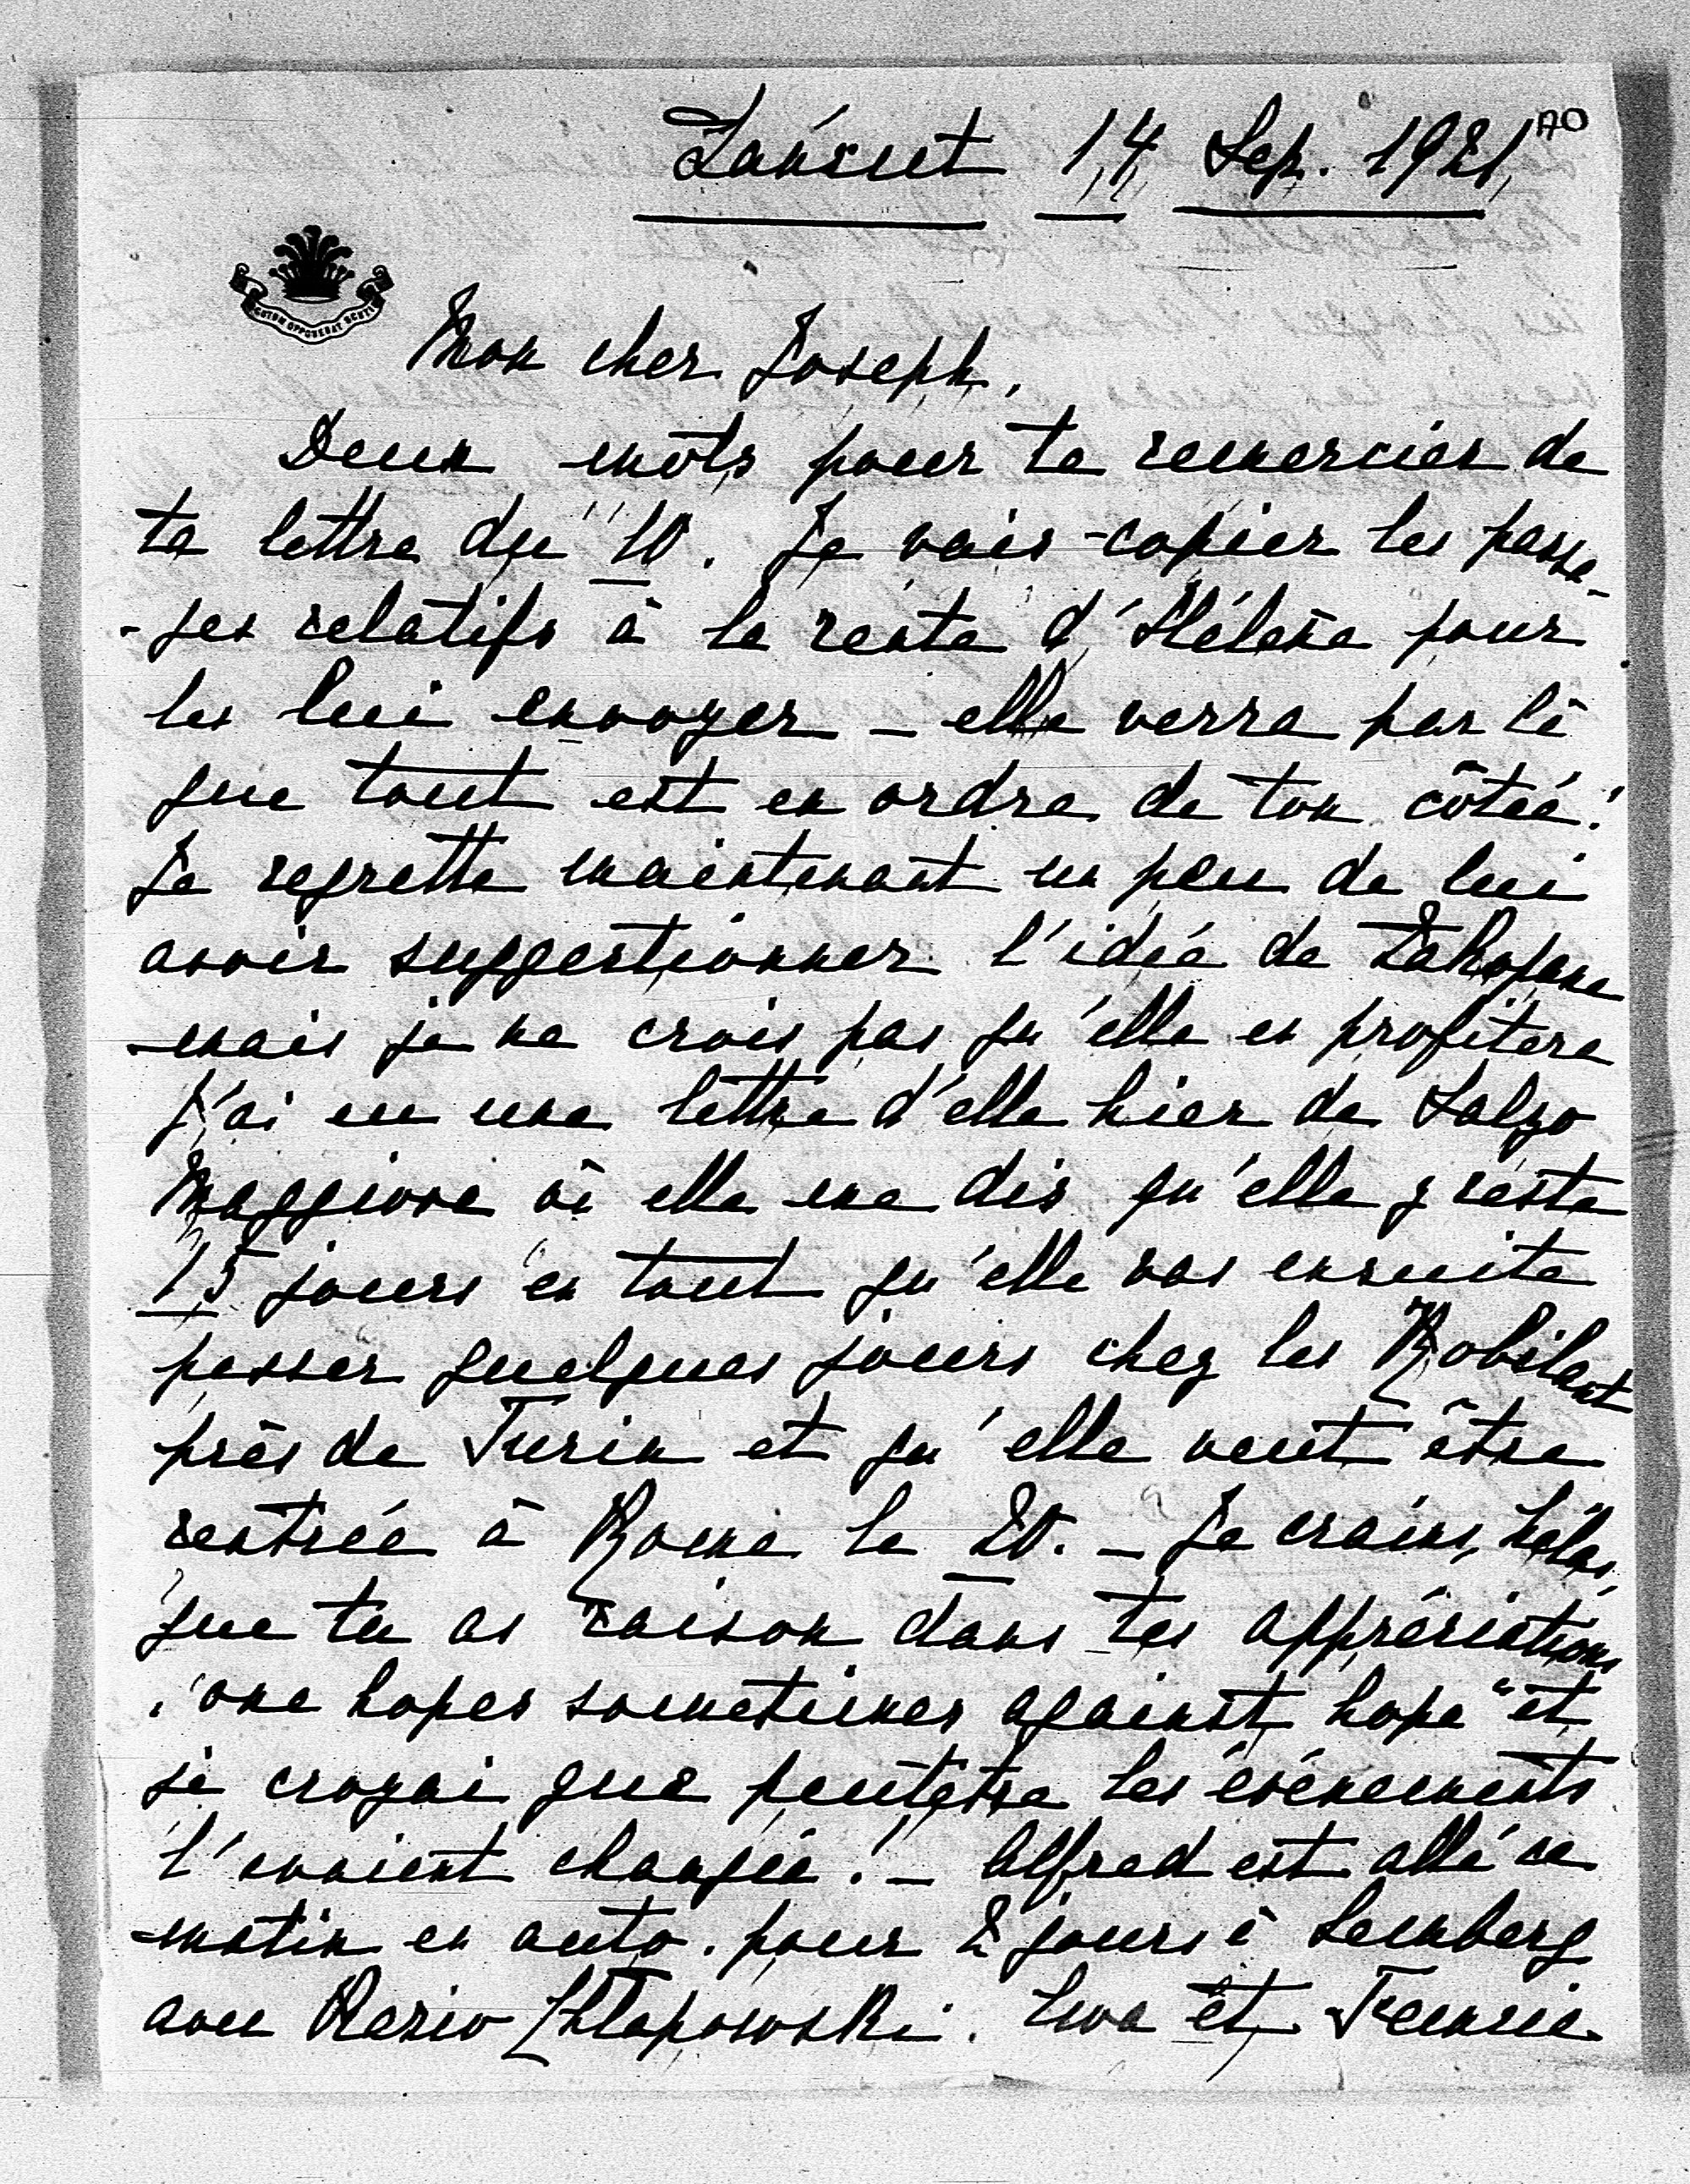 Łańcut 14 Sep. 1921
AO
Mon cher Joseph,
Deux mots pour te remercier de
ta lettre du 10. Je vais copier les passa-
-ges relatifs à la rente d'Hélène pour
les lui envoyer – elle verra par là
que tout est en ordre de ton côtéé!
Je regrette maintenant un peu de lui
avoir suggestionner l'idée de Zakopane
mais je ne crois pas qu'elle en profitera
J'ai eu une lettre d'elle hier de Salzo
Maggiore où elle me dis qu'elle y reste
15 jours en tout qu'elle vas ensuite
passer quelques jours chez les Robilant
près de Turin et qu'elle veut être
rentrée à Rome le 20. – Je crains, hélas,
que tu as raison dans tes appréciations
"one hopes sometimes against hope" et
je croyai que peutêtre les événements
l'avaient changée! – Alfred est allé ce
matin en auto. pour 2 jours à Lemberg
avec Chłapowski. et